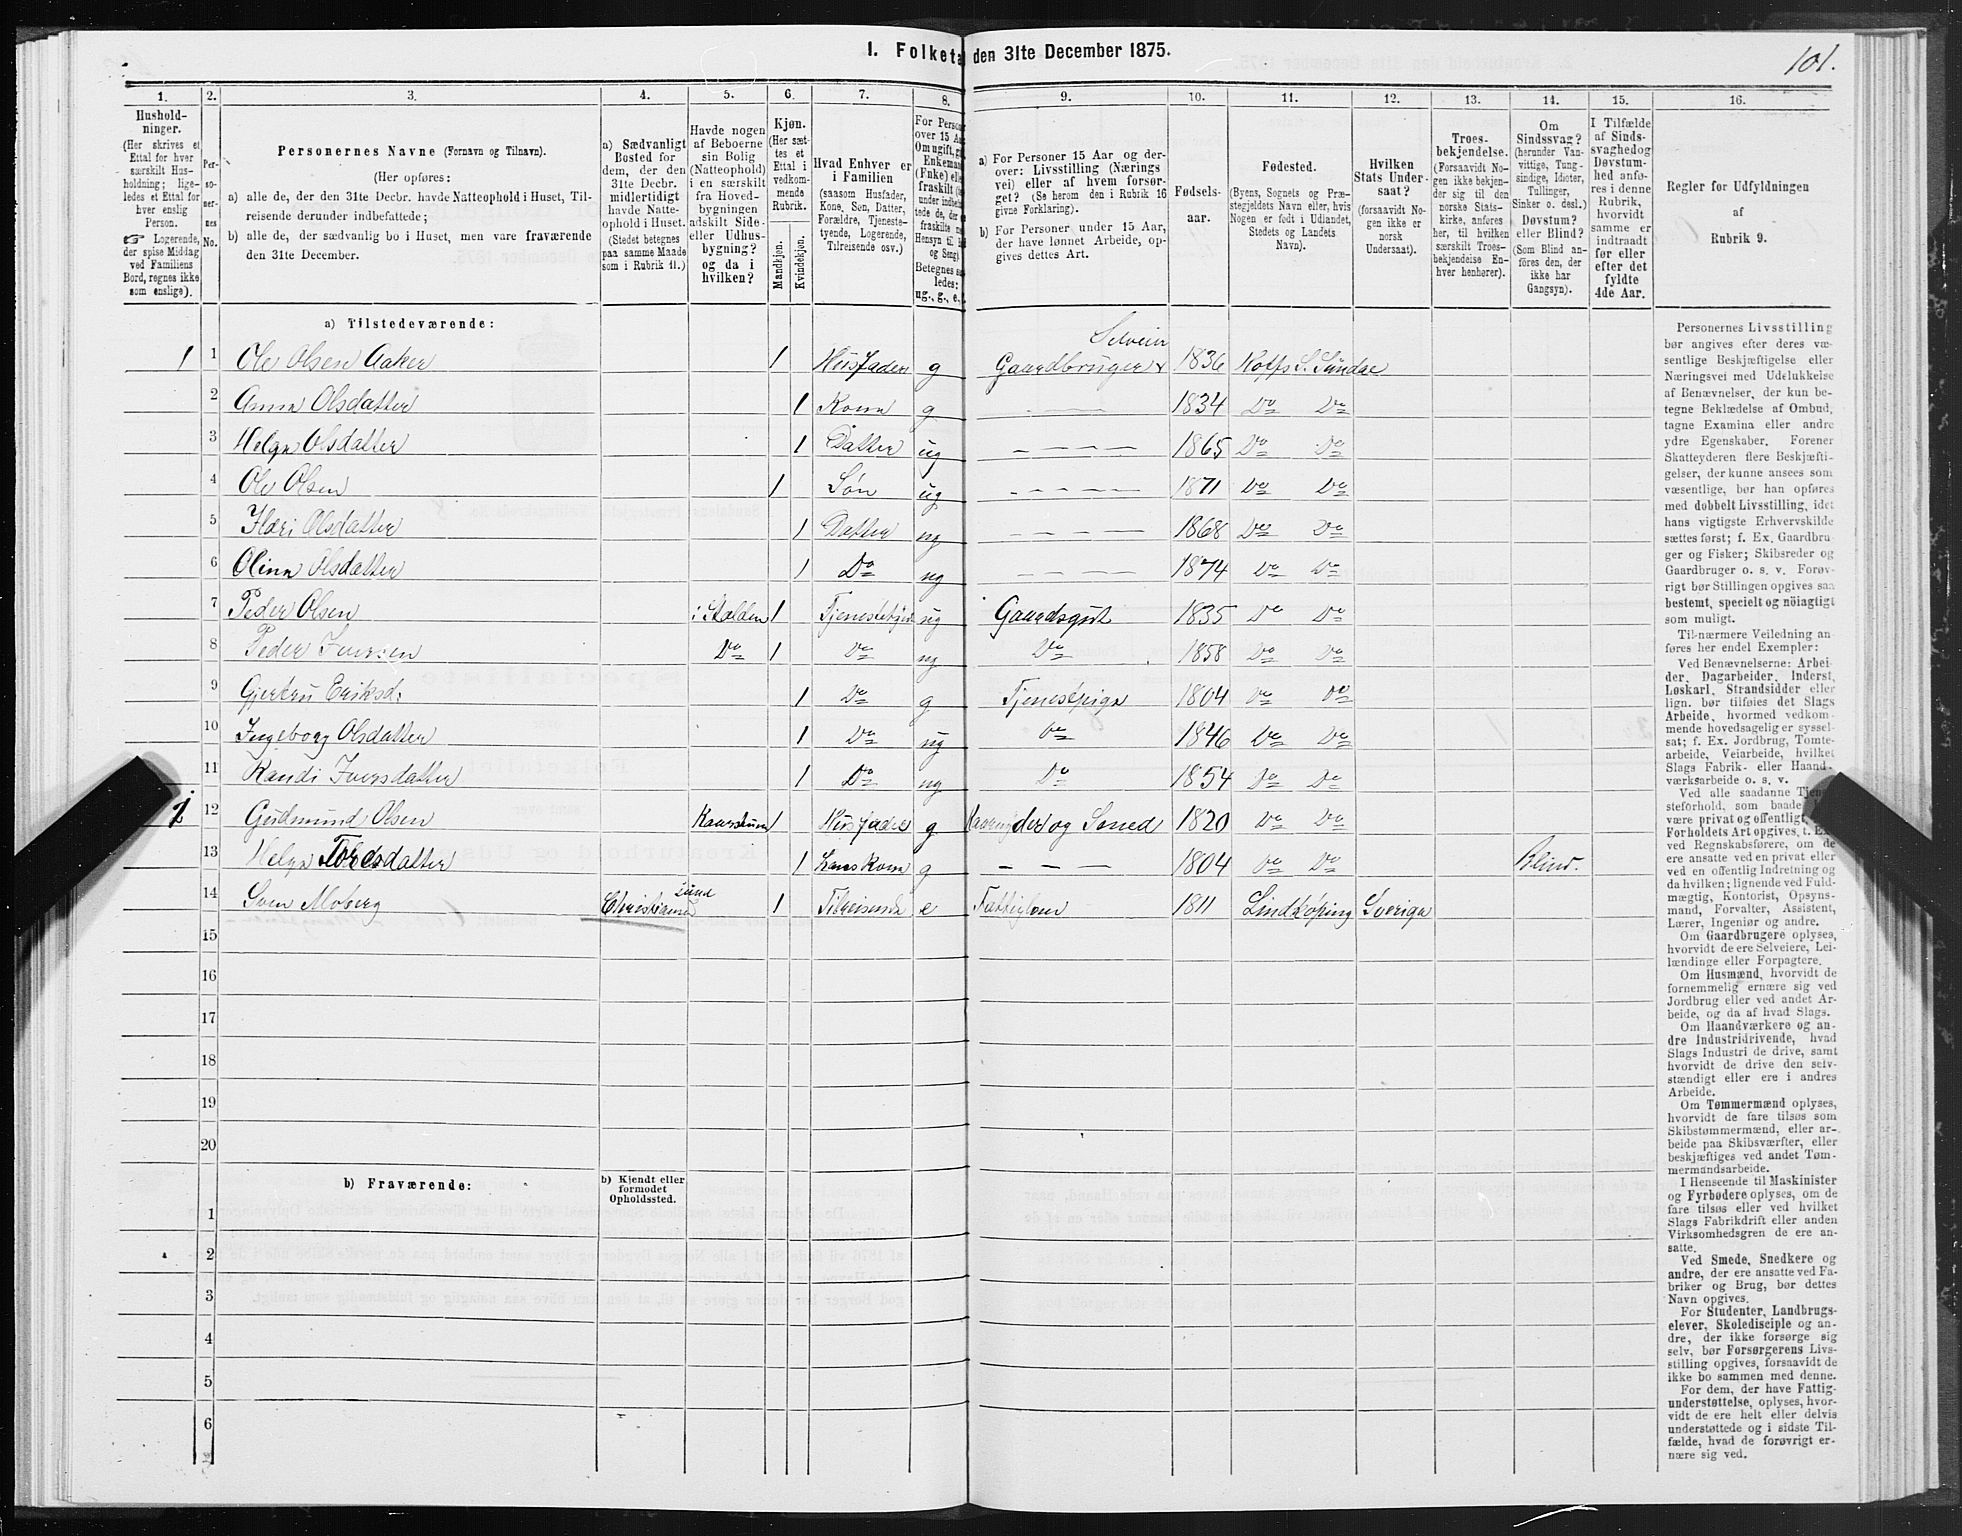 I. Folketa den 31te December 1875.
101.
1. 2. 3. 4. 5. 6. 7. 8. 9. 10. 11. 12. 13. 14. 15. 16.
Hushold-
ninger.
(Her skrives et
Ettal for hver
særskilt Hus-
holdning; lige-
ledes et Ettal for
hver enslig
Person.
☞ Logerende,
der spise Middag
ved Familiens
Bord, regnes ikke
som enslige).
Per-
so-
ner-
nes
No.
Personernes Navne (Fornavn og Tilnavn).
(Her opføres:
a) alle de, der den 31te Decbr. havde Natteophold i Huset, Til-
reisende derunder indbefattede;
b) alle de, der sædvanlig bo i Huset, men vare fraværende
den 31te December.
a) Sædvanligt
Bosted for
dem, der den
31te Decbr.
midlertidigt
havde Natte-
ophold i Huset.
(Stedet betegnes
paa samme Maade
som i Rubrik 11.)
Havde nogen
af Beboerne
sin Bolig
(Natteophold)
i en særskilt
fra Hoved-
bygningen
adskilt Side-
eller Udhus-
bygning?
og da i
hvilken?
Kjøn.
(Her sæt-
tes et
Ettal i
vedkom-
mende
Rubrik.
Mandkjøn.
Kvindekjøn.
Hvad Enhver er
i Familien
(saasom Husfader,
Kone, Søn, Datter,
Forældre, Tjeneste-
tyende, Logerende,
Tilreisende osv.)
For Person
over 15 Aar
Om ugift, gi
Enkemand
(Enke) elle
fraskilt
Betegnes s
ledes:
ug., g., e.,
a) For Personer 15 Aar og der-
over: Livsstilling (Nærings
vei) eller af hvem forsør-
get? (Se herom den i Rubrik 16
givne Forklaring).
b) For Personer under 15 Aar,
der have lønnet Arbeide, op-
gives dettes Art.
Fødsels-
aar.
Fødested.
(Byens, Sognets og Præ-
stegjeldets Navn eller, hvis
Nogen er født i Udlandet,
Stedets og Landets
Navn).
Hvilken
Stats Under-
saat?
(forsaavidt No-
gen ikke er
norsk
Undersaat).
Troes-
bekjendelse.
(Forsaavidt No-
gen ikke bekjen-
der sig til den
norske Stats-
kirke, anføres
her, til hvilken
særskilt Troes-
bekjendelse En-
hver henhører).
Om
Sindssvag?
(herunder Van-
vittige, Tung-
sindige, Idioter,
Tullinger,
Sinker o. desl.)
Døvstum?
eller Blind?
(Som Blind an-
føres den, der
ikke har
Gangsyn).
I Tilfælde
af Sinds-
svaghed og
Døvstum-
hed anfø-
res i denne
Rubrik,
hvorvidt
samme er
indtraadt
før eller
efter det
fyldte
4de Aar.
Regler for Udfyldningen
af
Rubrik 9.
a) Tilstedeværende:
1 1 Ole Olsen Aaker 1 Husfader g Gaardbruger Selveier 1836 S. Sundae
2 Anna Olsdatter 1 Kona g 1834 Do Do
3 Helga Olsdatter 1 Datter ug 1865 Do Do
4 Ole Olsen 1 Søn ug 1871 Do Do
5 Olsdatter 1 Datter ug 1868 Do Do
6 Olina Olsdatter 1 Do ug 1874 Do Do
7 Peder Olsen i Stalden 1 ug Gaardsgut 1835 Do Do
8 Peder Iversen Do 1 Do ug Do 1858 Do Do
9 Gjertru Eriksd. 1 Do g Tjenestpiga 1804 Do Do
10 Ingeborg Olsdatter 1 Do ug Do 1846 Do Do
11 Randi Iversdatter 1 Do ug Do 1854 Do Do
1 12 Gudmund Olsen 1 Husfader g og Smed 1820 Do Do
13 Helga Tordsdatter 1 Hans Kona g 1804 Do Do Blind.
14 Sven Moberg Christiansund 1 Tilreisende e Fattiglem 1811 Lindköping Sveriga
15
16
17
18
19
20
b) Fraværende:
b) Kjendt eller
formodet
Opholdssted.
1
2
3
4
5
6
Personernes Livsstilling
bør angives efter deres væ-
sentlige Beskjæftigelse eller
Næringsvei med Udelukkelse
af Benævnelser, der kun be-
tegne Beklædelse af Ombud,
tagne Examina eller andre
ydre Egenskaber. Forener
Skatteyderen flere Beskjæfti-
gelser, der kunne ansees som
væsentlige, bør han opføres
med dobbelt Livsstilling, idet
hans vigtigste Erhvervskilde
sættes først; f. Ex. Gaardbru-
ger og Fisker; Skibsreder og
Gaardbruger o. s. v. Forøv-
rigt bør Stillingen opgives saa
bestemt, specielt og nöiagtigt
som muligt.
Til nærmere Veiledning an-
føres her endel Exempler:
Ved Benævnelserne: Arbei-
der, Dagarbeider, Inderst,
Løskarl, Strandsidder eller
lign. bør tilføies det Slags
Arbeide, hvormed vedkom-
mende hovedsagelig er syssel-
sat; f. Ex. Jordbrug, Tomte-
arbeide, Veiarbeide, hvilket
Slags Fabrik- eller Haand-
værksarbeide o. s. v.
Ved alle saadanne Tjene-
steforhold, som baade
være privat og offentligt,
Forholdets Art opgives, f. Ex.
ved Regnskabsførere, om de
ere ansatte ved en privat eller
ved en offentlig Indretning og
da hvilken; lignende ved Fuld-
mægtig, Kontorist, Opsyns-
mand, Forvalter, Assistent,
Lærer, Ingeniør og andre.
Om Gaardbrugere oplyses,
hvorvidt de ere Selveiere, Lei-
lændinge eller Forpagtere.
Om Husmænd, hvorvidt de
fornemmelig ernære sig ved
Jordbrug eller ved andet Ar-
beide, og da af hvad Slags.
Om Haandværkere og an-
dre Industridrivende, hvad
Slags Industri de drive, samt
hvorvidt de drive den selv-
stændigt eller ere i andres
Arbeide.
Om Tømmermænd oplyses,
hvorvidt de fare tilsøs som
Skibstømmermænd, eller ar-
beide paa Skibsværfter, eller
beskjæftiges ved andet Tøm-
mermandsarbeide.
I Henseende til Maskinister
og Fyrbødere oplyses, om de
fare tilsøs eller ved hvilket
Slags Fabrikdrift eller anden
Virksomhedsgren de ere an-
satte.
Ved Smede, Snedkere og
andre, der ere ansatte ved Fa-
briker og Brug, bør dettes
Navn opgives.
For Studenter, Landbrugs-
elever, Skoledisciple og an-
dre, der ikke forsørge sig
selv, bør Forsørgerens Livs-
stilling opgives, forsaavidt de
ikke bo sammen med denne.
For dem, der have Fattig-
understøttelse, oplyses, hvor-
vidt de ere helt eller delvis
understøttede og i sidste Til-
fælde, hvad de forøvrigt er-
nære sig ved.